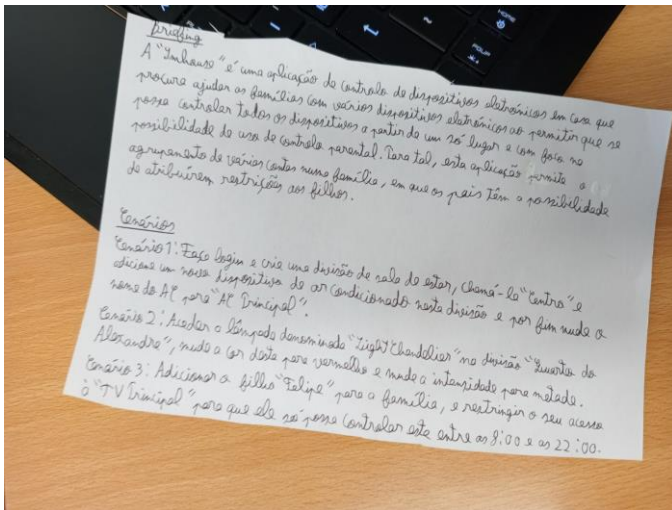 Briefing
A "Imhouse" é uma aplicação de controlo de dispositivos eletrónicos em casa que
procura ajudar as famílias com vários dispositivos eletrónicos ao permitir que se
possa controlar todos os dispositivos a partir de um só lugar e com foco na
possibilidade de uso de controlo parental. Para tal, esta aplicação permite o
agrupamento de várias contas numa família, em que os pais têm a possibilidade
de atribuírem restrições aos filhos.
Cenários
Cenário 1: Faça login e crie uma divisão de sala de estar, chamá-la "Centro" e
adicione um novo dispositivo de ar condicionado nesta divisão e por fim mude o
nome do AC para "AC Principal".
Cenário 2: Aceder a lâmpada denominada "Light Chandelier" na divisão "Quarto do
Alexandre", mude a cor deste para vermelho e mude a intensidade para metade.
Cenário 3: Adicionar o filho "Felipe" para a família, e restringir o seu acesso
à "TV Principal" para que ele só possa controlar esta entre as 8:00 e as 22:00.
HOME